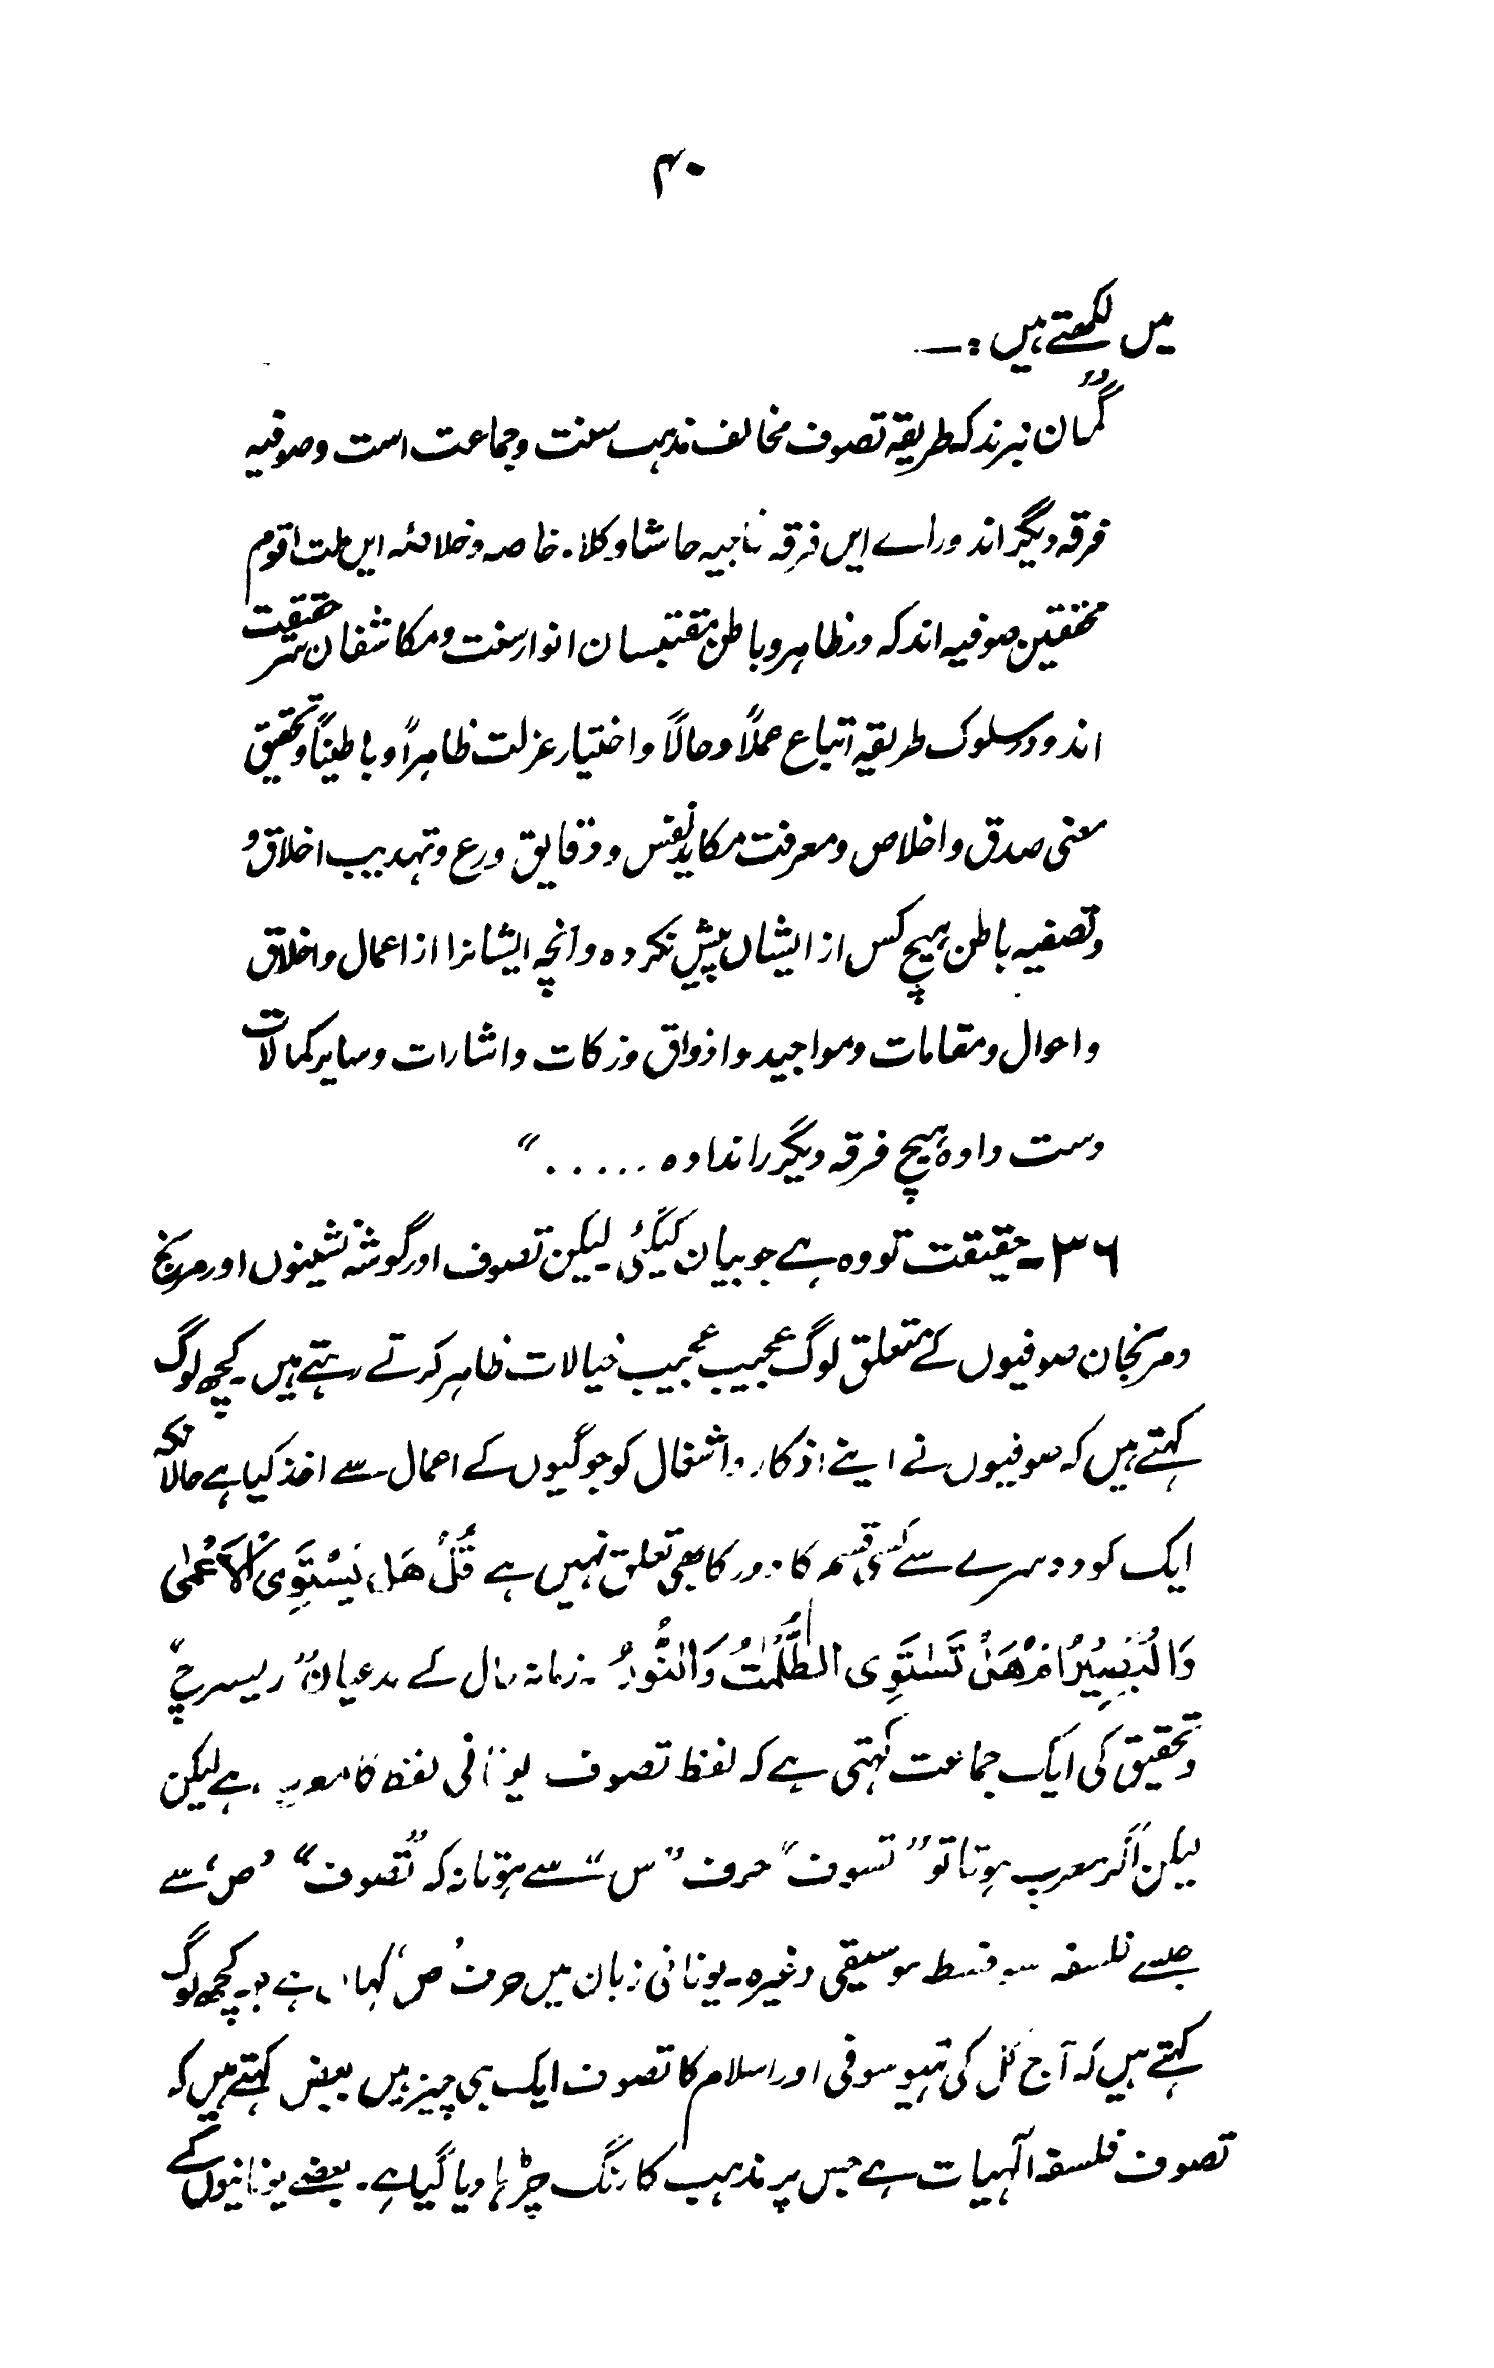 ۴۰
میں لکھتے ہیں :۔
"گمان نبرند کہ طریقہ تصوف مخالف مذہب سنت وجماعت است وصوفیہ
فرقہ دیگر اند وراے ایں فرقہ ناجیہ حاشا وکلا۔ خاصہ وخلاصہ ایں ملت اقوم
محققین صوفیہ اند کہ در ظاہر و باطن مقتبسان انوار سنت ومکاشفان سر حقیقت
اند ودر سلوک طریقہ اتباع عملاً وحالاً واختیار عزلت ظاہراً وباطیناً وتحقیق
معنی صدق واخلاص ومعرفت مکاید نفس ودقایق ورع وتہدیب اخلاق و
وتصفیہ باطن ہیچ کس از ایشاں پیش نکردہ وآنچہ ایشانرا از اعمال واخلاق
واحوال ومقامات ومواجید واذواق وزکات واشارات وسایر کمالات
دست دادہ ہیچ فرقہ دیگر را ندادہ ....."
۳۶۔ حقیقت تو وہ ہے جو بیان کیگئی۔ لیکن تصوف اور گوشہ نشینوں اور مرنج
ومرنجان صوفیوں کے متعلق لوگ عجیب عجیب خیالات ظاہر کرتے رہتے ہیں۔ کچھ لوگ
کہتے ہیں کہ صوفیوں نے اپنے اذکار واشغال کو جوگیوں کے اعمال سے اخذ کیا ہے حالانکہ
ایک کو دوسرے سے کسی قسم کا دور کا بھی تعلق نہیں ہے قُلْ هَلْ يَسْتَوِى الْاَعْمٰى
وَالْبَصِيْرُ اَمْ هَلْ تَسْتَوِى الظُّلُمٰتُ وَالنُّوْرُ ۔ زمانہ حال کے مدعیان "ریسرچ"
وتحقیق کی ایک جماعت کہتی ہے کہ لفظ تصوف یونانی لفظ کا معرب ہے لیکن
لیکن اگر معرب ہوتا تو "تسوف" حرف "س" سے ہوتا نہ کہ "تصوف" 'ص' سے
جیسے فلسفہ سوفسط موسیقی وغیرہ۔ یونانی زبان میں حرف 'ص' کہاں ہے ؟۔ کچھ لوگ
کہتے ہیں کہ آج کل کی تھیوسوفی اور اسلام کا تصوف ایک ہی چیز ہیں بعض کہتے ہیں کہ
تصوف فلسفہ آلہیات ہے جس پر مذہب کا رنگ چڑہا دیا گیا ہے۔ بعضے یونانیوں کے